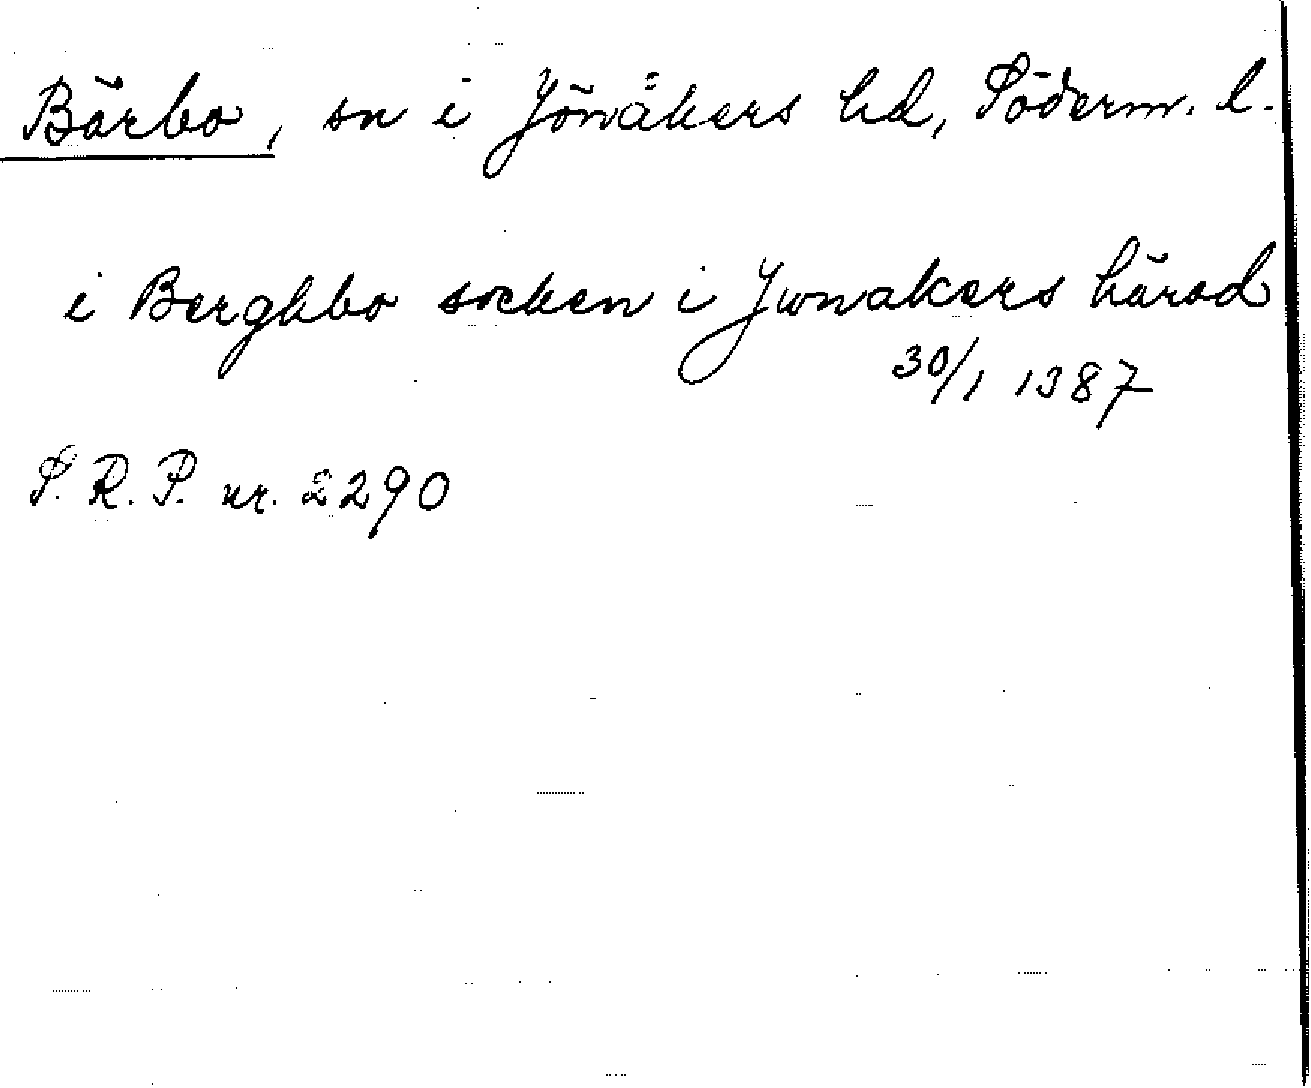 Bärbo, sn i Jönåkers hd, Söderm. l.
i Berghbo socken i Jwnakers härad
30/1 1387
S. R. P. nr. 2290